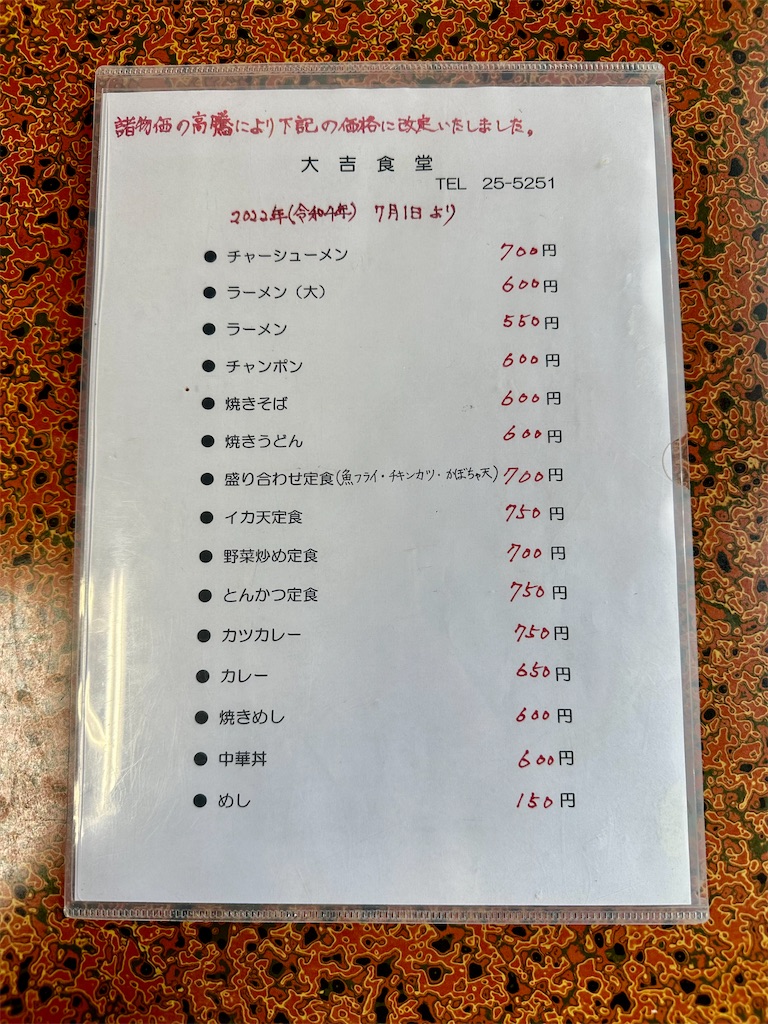 諸物価の高騰により下記の価格に改定いたしました。
大吉食堂
TEL 25-5251
2022年(令和4年) 7月1日より
● チャーシューメン 700円
● ラーメン（大） 600円
● ラーメン 550円
● チャンポン 600円
● 焼きそば 600円
● 焼きうどん 600円
● 盛り合わせ定食(魚フライ・チキンカツ・かぼちゃ天) 700円
● イカ天定食 750円
● 野菜炒め定食 700円
● とんかつ定食 750円
● カツカレー 750円
● カレー 650円
● 焼きめし 600円
● 中華丼 600円
● めし 150円